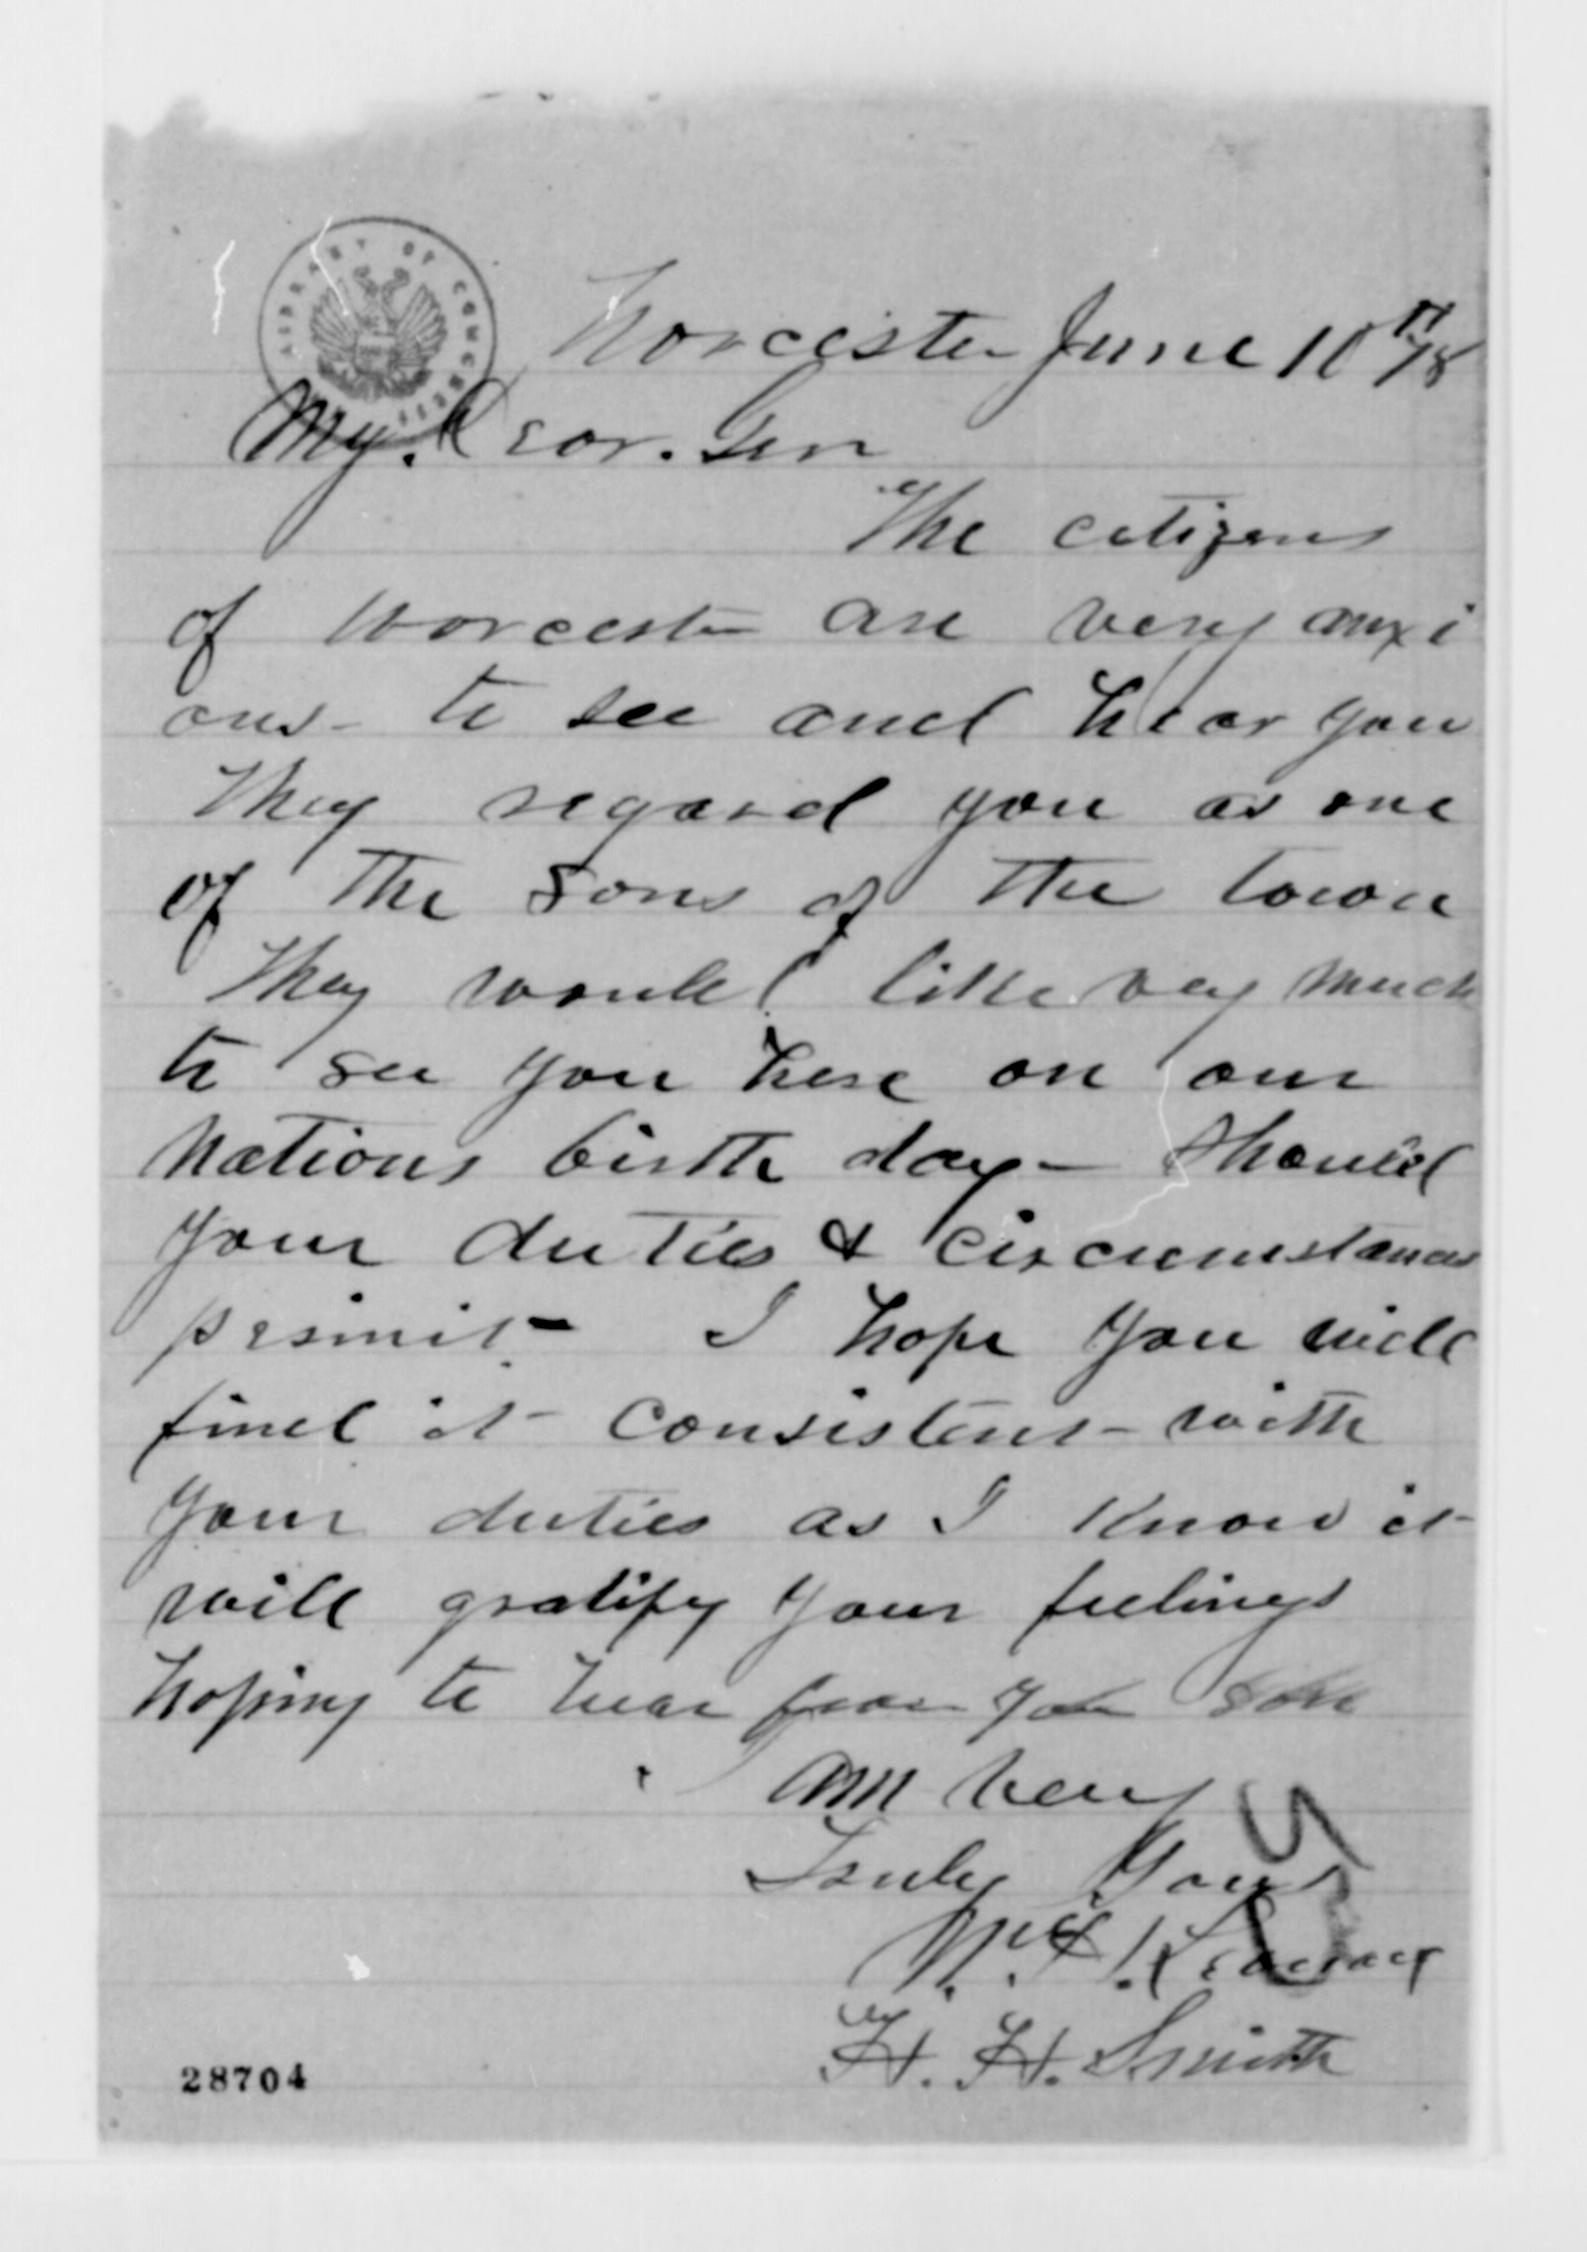 LIBRARY OF CONGRESS
Worcester June 10th /78
My. Dear. Gen
The citizens
of Worcester are very anxi
ous - to see and hear you
They regard you as one
of the Sons of the town
They would like very much
to see you here on our
Nations birth day - Should
your duties & circumstances
permit - I hope you will
find it - consistent - with
your duties as I know it -
will gratify your feelings
hoping to hear from you soon
I am very
Truly Yours
by
H. H. Smith
28704